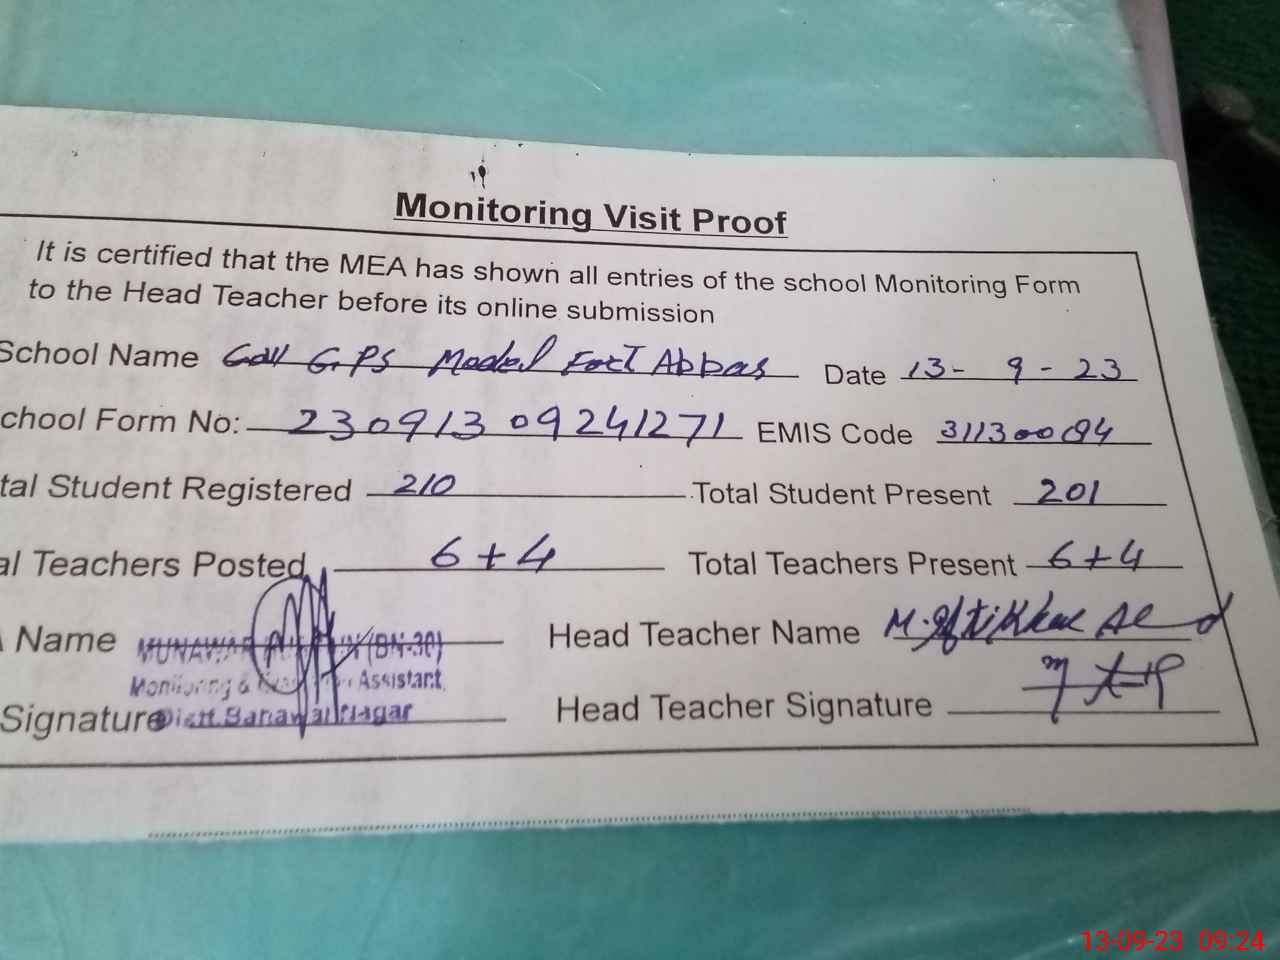 Monitoring Visit Proof
It is certified that the MEA has shown all entries of the school Monitoring Form
to the Head Teacher before its online submission
School Name Govt G.PS Model Fort Abbas Date 13- 9 - 23
chool Form No: 230913 09241271 EMIS Code
tal Student Registered 210 Total Student Present 201
al Teachers Posted 6+4 Total Teachers Present 6+4
Name MUNAWAR (BN-30) Head Teacher Name M.Iftikhar
Monitoring & Assistant
Signature Distt.Bahawalnagar Head Teacher Signature
13-09-23 09:24